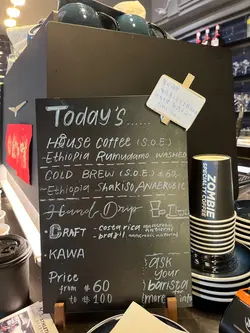 Today's......
HOUSE COFFEE (S.O.E)
- Ethiopia Rumudamo WASHED
COLD BREW (S.O.E)
- Ethiopia Shakiso ANAEROBIC
Hand Drip
CRAFT - costa rica
- brazil
- KAWA
Price
from $60
to $100
ask
your
barista
more info
ZOMBIE
SPECIALTY COFFEE